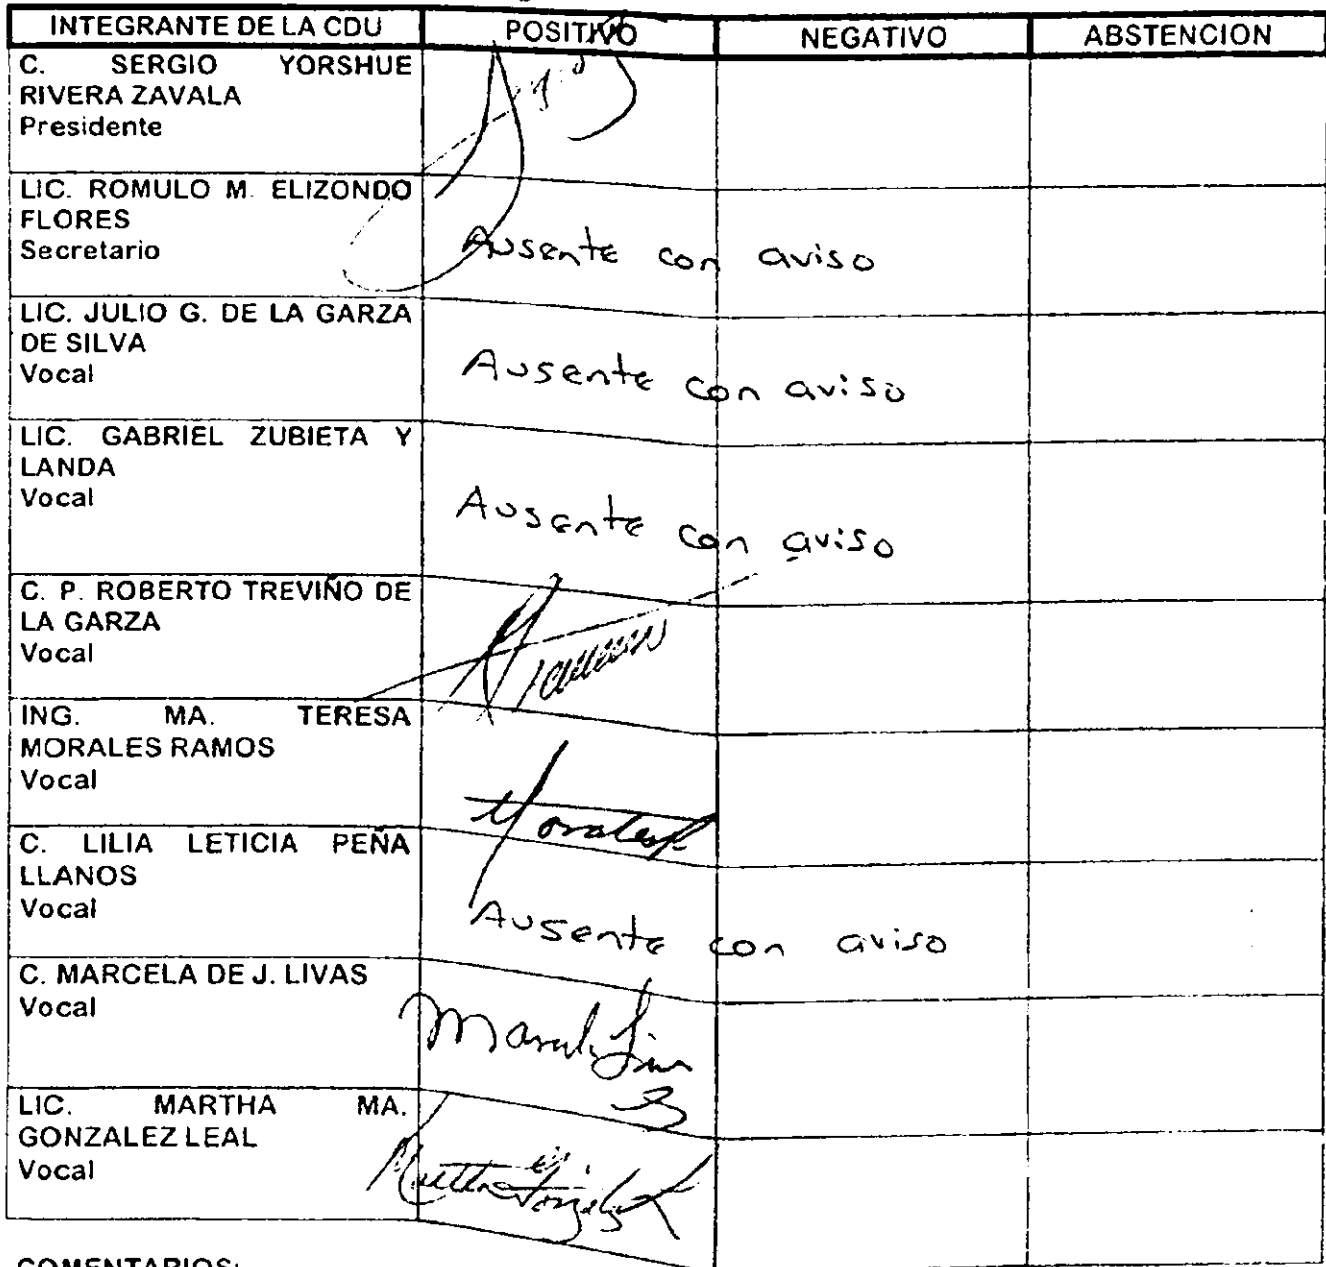 INTEGRANTE DE LA CDU POSITIVO NEGATIVO ABSTENCION
C. SERGIO YORSHUE
RIVERA ZAVALA
Presidente
LIC. ROMULO M. ELIZONDO
FLORES
Secretario
Ausente con aviso
LIC. JULIO G. DE LA GARZA
DE SILVA
Vocal
Ausente con aviso
LIC. GABRIEL ZUBIETA Y
LANDA
Vocal
Ausente con aviso
C. P. ROBERTO TREVIÑO DE
LA GARZA
Vocal
ING. MA. TERESA
MORALES RAMOS
Vocal
Morales
C. LILIA LETICIA PEÑA
LLANOS
Vocal
Ausente con aviso
C. MARCELA DE J. LIVAS
Vocal
LIC. MARTHA MA.
GONZALEZ LEAL
Vocal
COMENTARIOS: